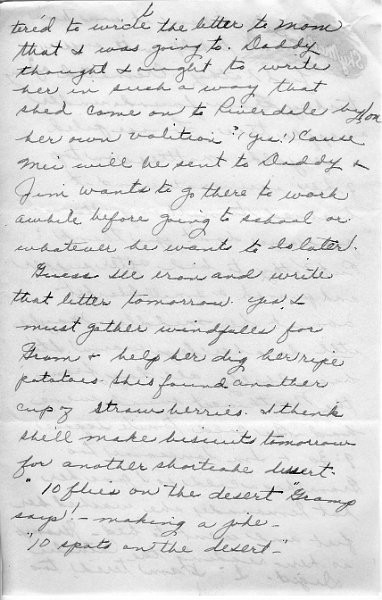 tered to write the letter to Mom
that I was going to. Daddy
thought I ought to write
her in such a way that
shed come on to Riverdale by/on
her own volition? (yes!) Cause
Mic will be sent to Daddy &
Jim wants to go there to work
awhile before going to school or
whatever he wants to do later.
Guess I'll iron and write
that letter tomorrow. Yes, I
must gather windfalls for
Gram & help her dig her ripe
potatoes. She found another
cup of strawberries. I think
she'll make biscuits tomorrow
for another shortcake desert.
"10 flies on the desert" Gramp
says! - making a joke -
"10 spots on the desert -"